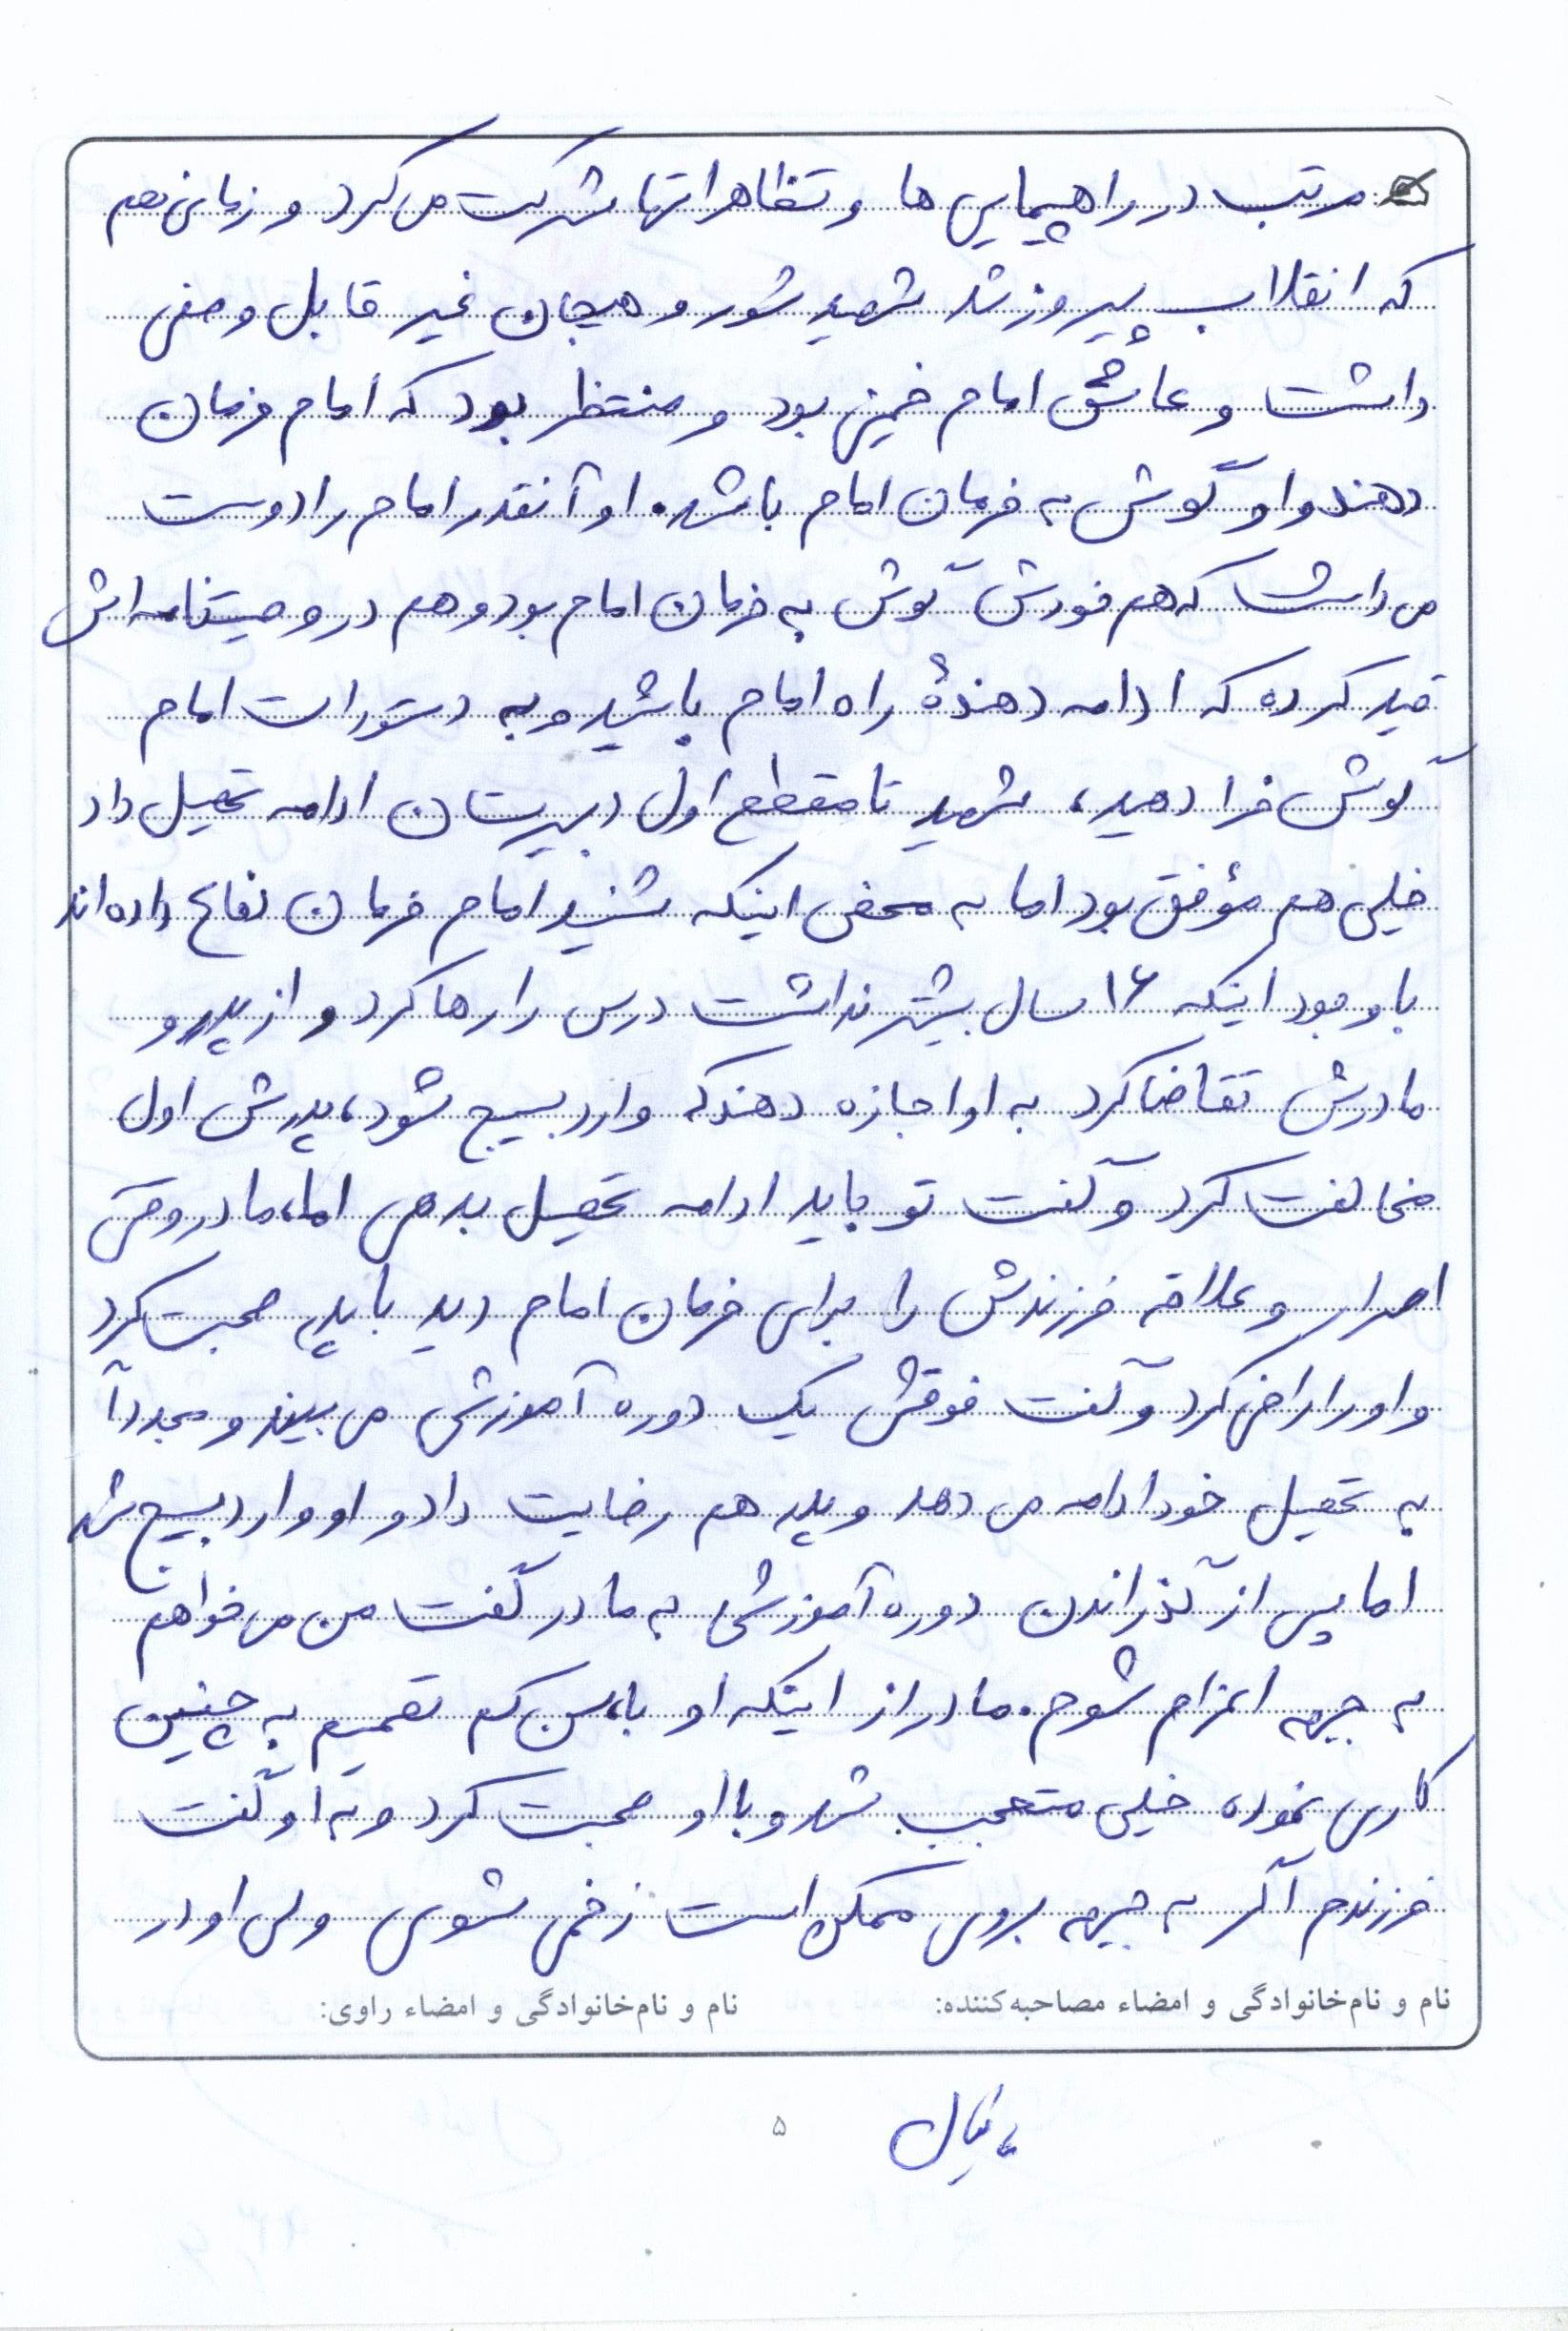 مرتب در راهپیمایی ها و تظاهراتها شرکت می کرد و زمانی هم
که انقلاب پیروز شد شهید شور و هیجان غیر قابل وصفی
داشت و عاشق امام خمینی بود و منتظر بود که امام فرمان
دهند و او گوش به فرمان امام باشد. او آنقدر امام را دوست
می داشت که هم خودش گوش به فرمان امام بود و هم در وصیتنامه اش
قید کرده که ادامه دهندهٔ راه امام باشید و به دستورات امام
گوش فرا دهید، شهید تا مقطع اول دبیرستان ادامه تحصیل داد
خیلی هم مؤفق بود اما به محض اینکه شنید امام فرمان دفاع داده اند
با وجود اینکه ۱۶ سال بیشتر نداشت درس را رها کرد و از پدر و
مادرش تقاضا کرد به او اجازه دهند که وارد بسیج شود، پدرش اول
مخالفت کرد و گفت تو باید ادامه تحصیل بدهی اما، مادر وقتی
اصرار و علاقه فرزندش را برای فرمان امام دید با پدر صحبت کرد
و او را راضی کرد و گفت فوقش یک دوره آموزشی می بیند و مجدداً
به تحصیل خود ادامه می دهد و پدر هم رضایت داد و او وارد بسیج شد
اما پس از گذراندن دوره آموزشی به مادر گفت من می خواهم
به جبهه اعزام شوم. مادر از اینکه او با، سن کم تصمیم به چنین
کاری نموده خیلی متعجب شد و با او صحبت کرد و به او گفت
فرزندم اگر به جبهه بروی ممکن است زخمی شوی ولی او در
نام و نام‌خانوادگی و امضاء مصاحبه‌کننده: نام و نام‌خانوادگی و امضاء راوی:
۵